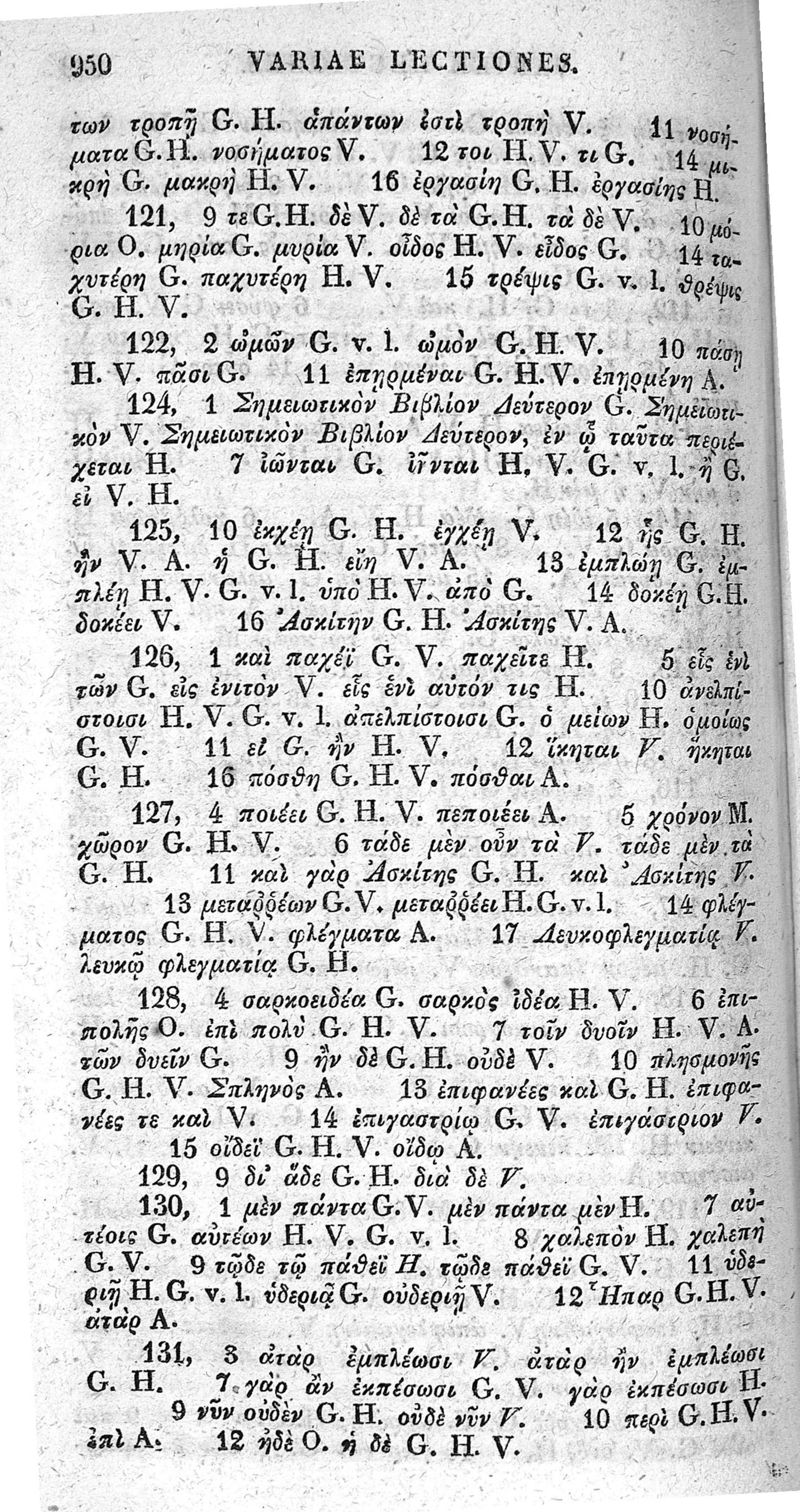 950 VARIAE LECTIONES.
των τροπῇ G. H. ἁπάντων ἐστὶ τροπὴ V. 11 νοσή-
ματα G. H. νοσήματος V. 12 τοι H. V. τι G. 14 μι-
κρὴ G. μακρὴ H. V. 16 ἐργασίη G. H. ἐργασίης H.
121, 9 τε G. H. δὲ V. δὲ τὰ G. H. τὰ δὲ V. 10 μό-
ρια O. μηρία G. μυρία V. οἶδος H. V. εἶδος G. 14 τα-
χυτέρη G. παχυτέρη H. V. 15 τρέψις G. v. l. θρέψις
G. H. V.
122, 2 ὠμῶν G. v. l. ὠμὸν G. H. V. 10 πάσῃ
H. V. πᾶσι G. 11 ἐπηρμέναι G. H. V. ἐπηρμένη A.
124, 1 Σημειωτικὸν Βιβλίον Δεύτερον G. Σημειωτι-
κὸν V. Σημειωτικὸν Βιβλίον Δεύτερον, ἐν ᾧ ταῦτα περιέ-
χεται H. 7 ἰῶνται G. ἰῆνται H. V. G. v. l. ἢ G.
εἰ V. H.
125, 10 ἐκχέῃ G. H. ἐγχέῃ V. 12 ἧς G. H.
ἢν V. A. ἡ G. H. εἴη V. A. 13 ἐμπλώῃ G. ἐμ-
πλέῃ H. V. G. v. l. ὑπὸ H. V. ἀπὸ G. 14 δοκέῃ G. H.
δοκέει V. 16 Ἀσκίτην G. H. Ἀσκίτης V. A.
126, 1 καὶ παχέϊ G. V. παχεῖτε H. 5 εἷς ἑνὶ
τῶν G. εἰς ἑνιτὸν V. εἷς ἑνὶ αὐτόν τις H. 10 ἀνελπί-
στοισι H. V. G. v. l. ἀπελπίστοισι G. ὁ μείων H. ὁμοίως
G. V. 11 εἰ G. ἢν H. V. 12 ἵκηται V. ἥκηται
G. H. 16 πόσθη G. H. V. πόσθαι A.
127, 4 ποιέει G. H. V. πεποιέει A. 5 χρόνον M.
χῶρον G. H. V. 6 τάδε μὲν οὖν τὰ V. τάδε μὲν τὰ
G. H. 11 καὶ γὰρ Ἀσκίτης G. H. καὶ Ἀσκίτης V.
13 μεταῤῥέων G. V. μεταῤῥέει H. G. v. l. 14 φλέγ-
ματος G. H. V. φλέγματα A. 17 Λευκοφλεγματίᾳ V.
λευκῷ φλεγματίᾳ G. H.
128, 4 σαρκοειδέα G. σαρκὸς ἰδέα H. V. 6 ἐπι-
πολῆς O. ἐπὶ πολὺ G. H. V. 7 τοῖν δυοῖν H. V. A.
τῶν δυεῖν G. 9 ἢν δὲ G. H. οὐδὲ V. 10 πλησμονῆς
G. H. V. Σπληνὸς A. 13 ἐπιφανέες καὶ G. H. ἐπιφα-
νέες τε καὶ V. 14 ἐπιγαστρίῳ G. V. ἐπιγάστριον V.
15 οἴδεϊ G. H. V. οἴδῳ A.
129, 9 δι᾽ ἅδε G. H. διὰ δὲ V.
130, 1 μὲν πάντα G. V. μὲν πάντα μὲν H. 7 αὐ-
τέοις G. αὐτέων H. V. G. v. l. 8 χαλεπὸν H. χαλεπὴ
G. V. 9 τῷδε τῷ πάθεϊ H. τῷδε πάθεϊ G. V. 11 ὑδε-
ριῇ H. G. v. l. ὑδεριᾷ G. οὐδεριῇ V. 12 Ἧπαρ G. H. V.
ἀτὰρ A.
131, 3 ἀτὰρ ἐμπλέωσι V. ἀτὰρ ἢν ἐμπλέωσι
G. H. 7 γὰρ ἂν ἐκπέσωσι G. V. γὰρ ἐκπέσωσι H.
9 νῦν οὐδὲν G. H. οὐδὲ νῦν V. 10 περὶ G. H. V.
ἐπὶ A. 12 ἠδὲ O. ἡ δὲ G. H. V.